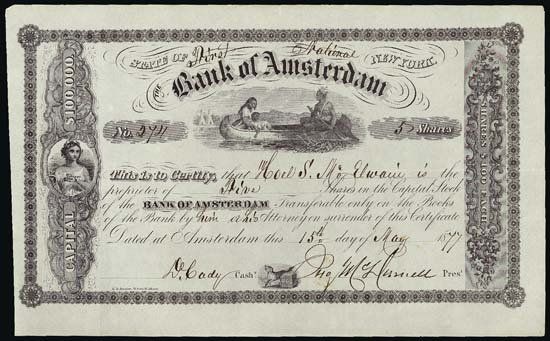 STATE OF First National NEW YORK.
THE Bank of Amsterdam
No. 274 5 Shares
This is to Certify, that Hoel S. Mc Elwain is the
proprietor of Five Shares in the Capital Stock
of the BANK OF AMSTERDAM Transferable only on the Books
of the Bank by him or his Attorney on surrender of this Certificate
Dated at Amsterdam this 15th day of May 1877
D. Cady Cashr. Jno McDonnell Prest.
CAPITAL $100,000
SHARES $100 EACH